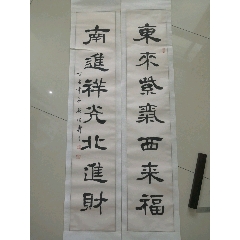 東來紫氣西来福
南進祥光北進財